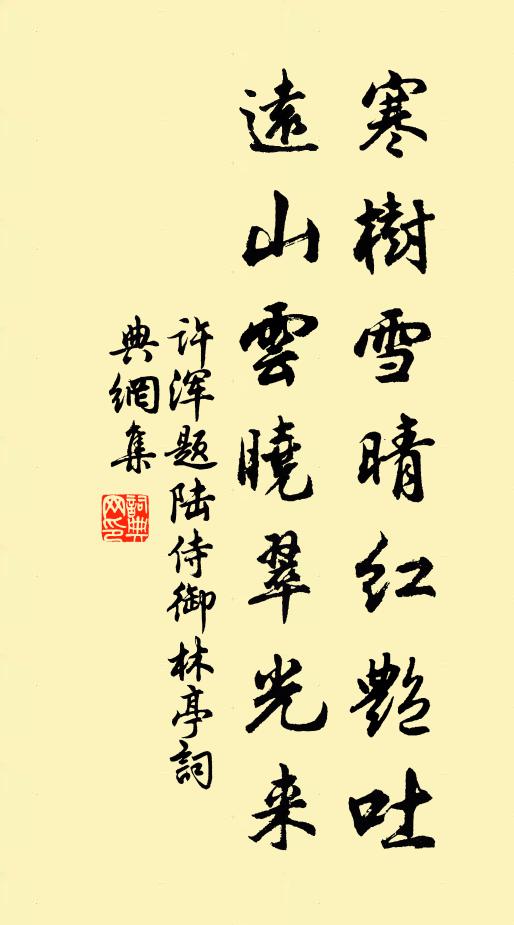 寒樹雪晴红艶吐
遠山雲曉翠光来
许浑题陆侍御林亭詞
典網集
詞典网印